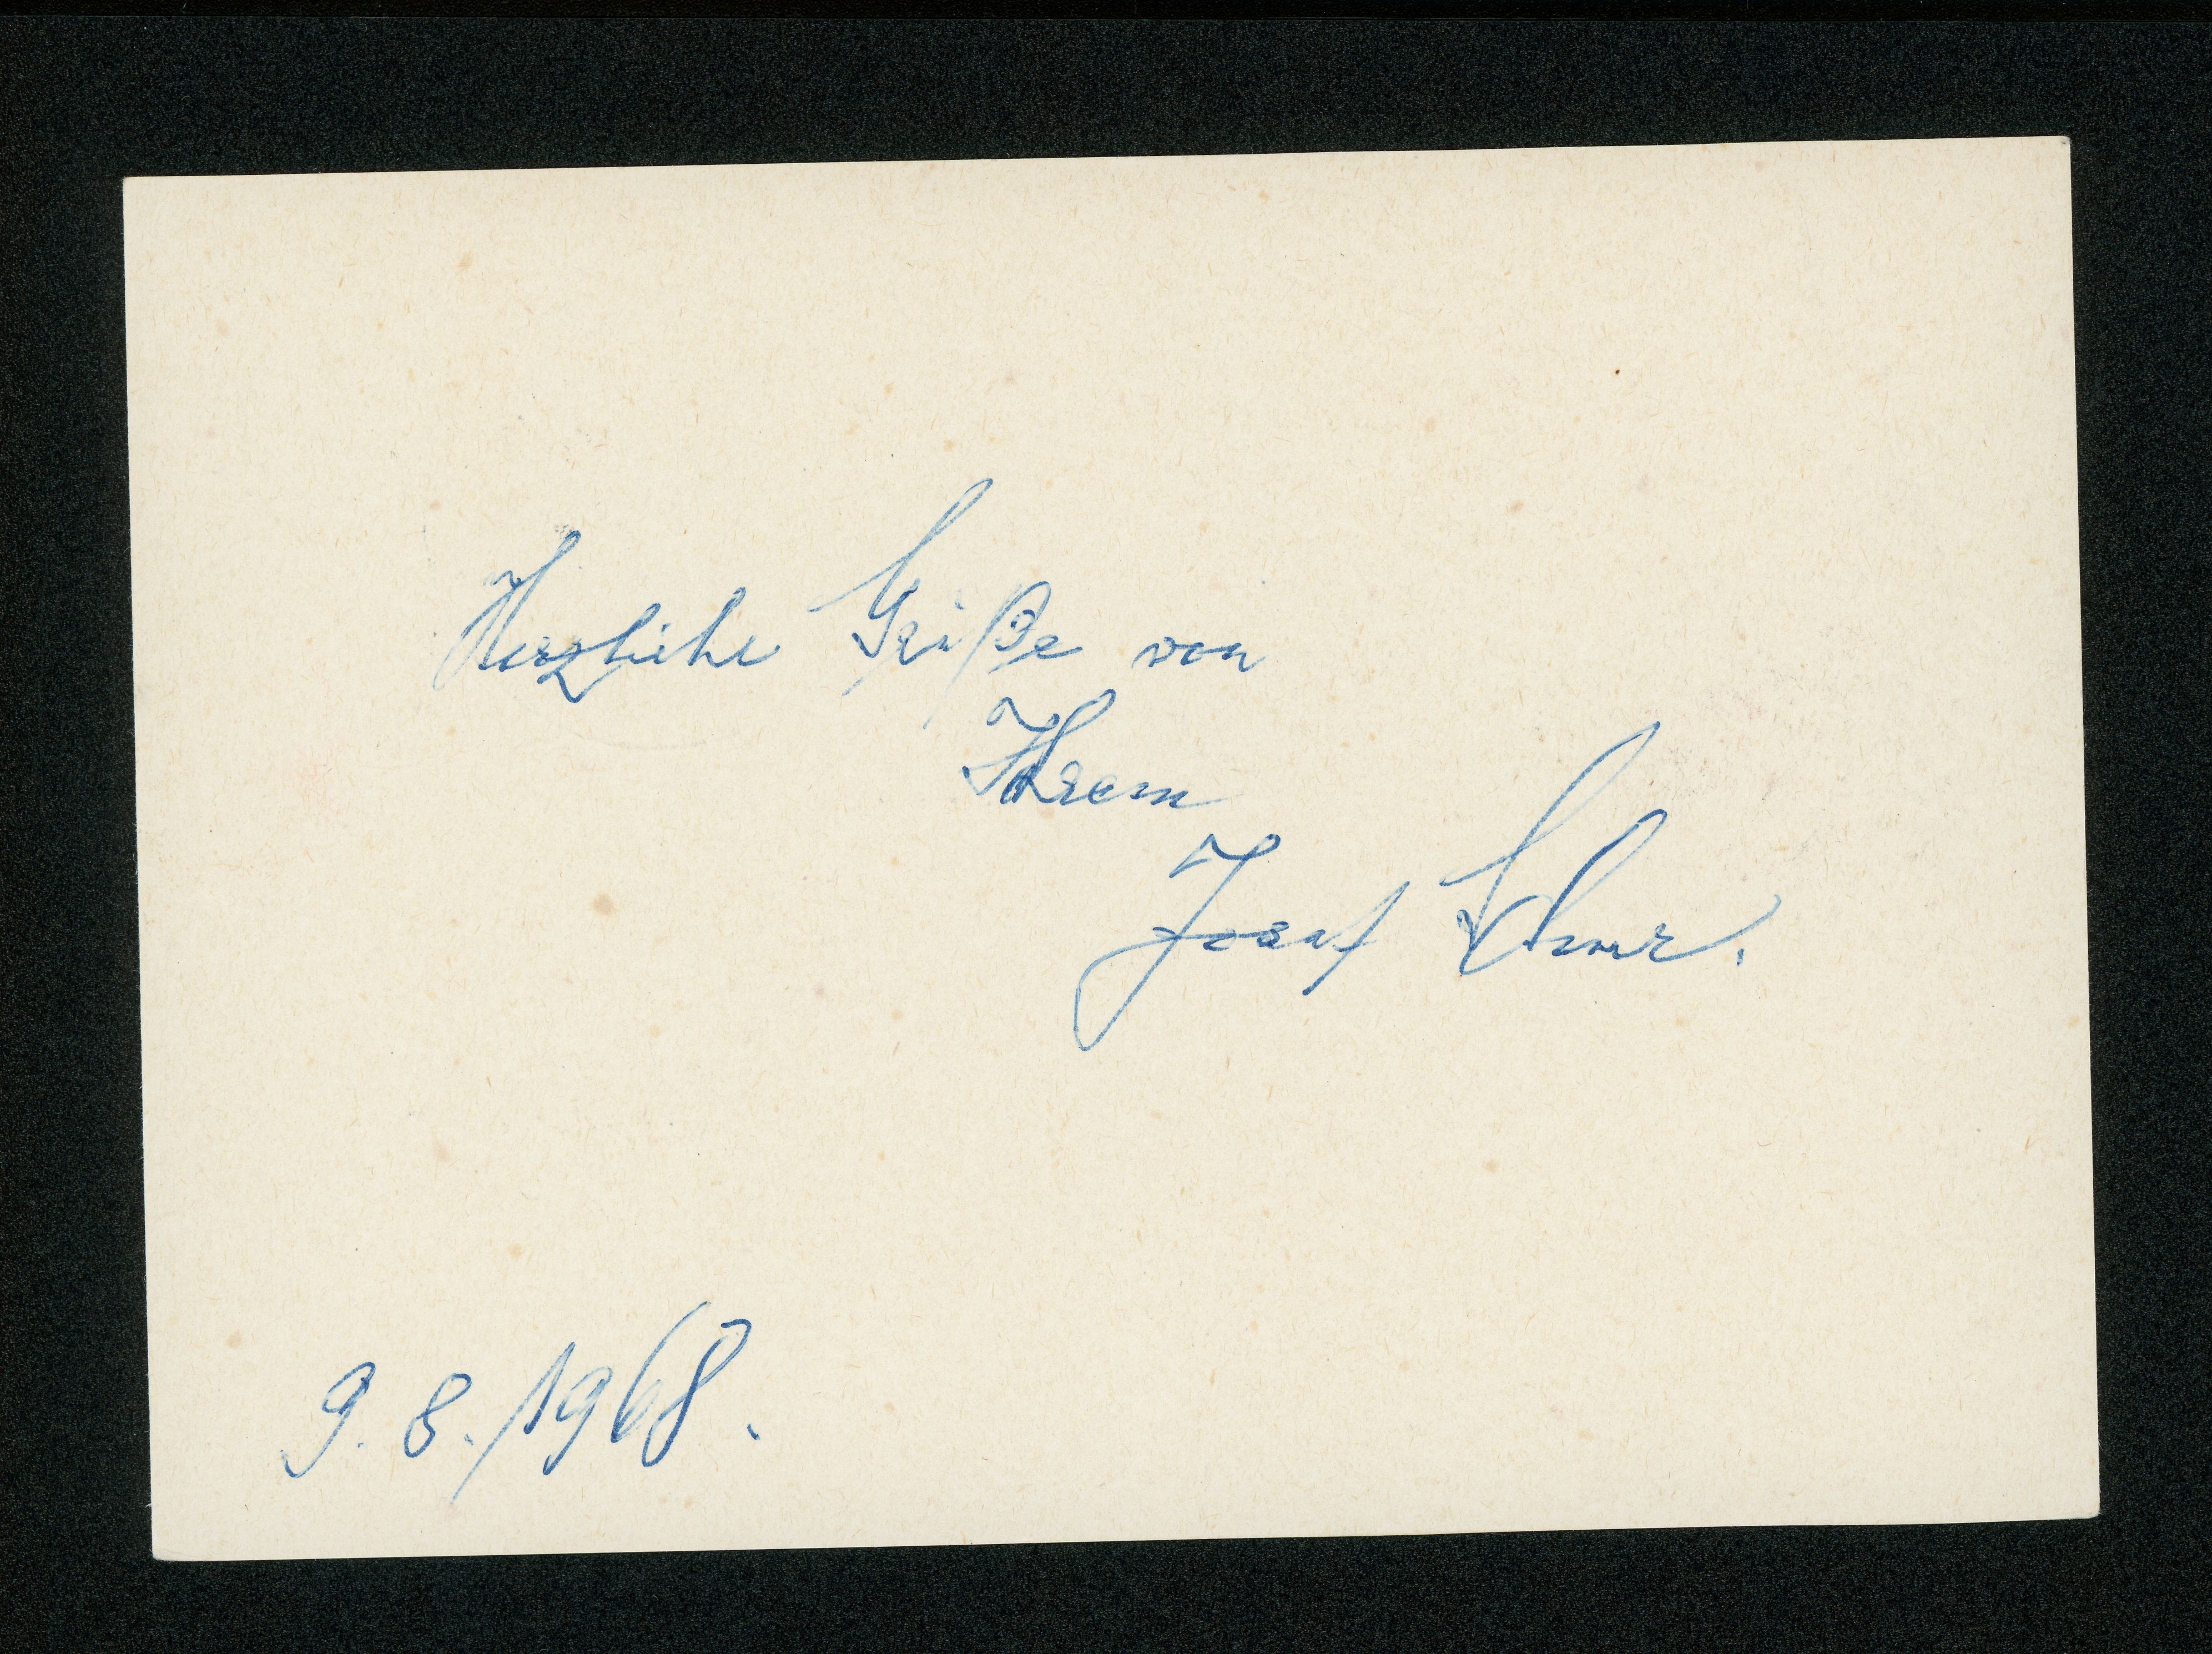 Herzliche Grüße von
Ihrem
Josef
9. 8. 1968.